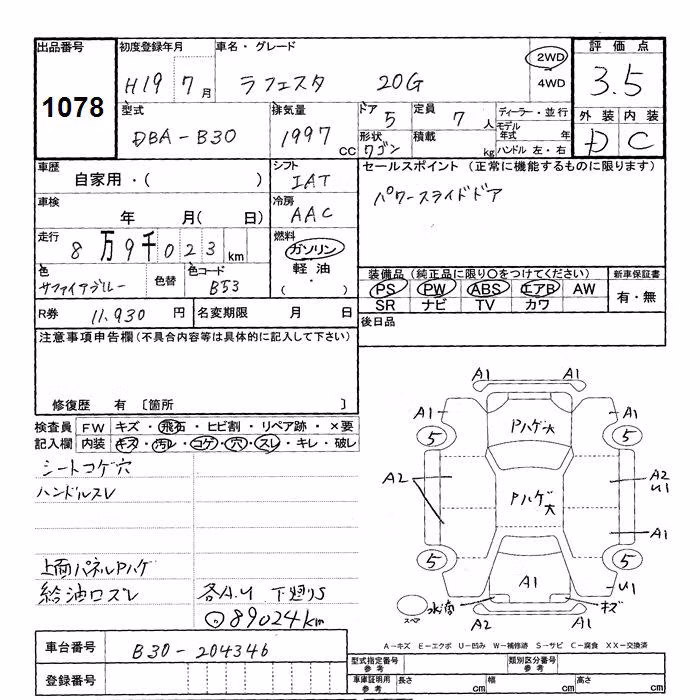 出品番号 1078
初度登録年月 H19 7月
車名・グレード ラフェスタ 20G
2WD
4WD
評価点 3.5
外装 D 内装 C
型式 DBA-B30
排気量 1997 CC
ドア 5
形状 ワゴン
定員 7 人
積載 kg
ディーラー・並行
モデル年式 年
ハンドル 左・右
車歴 自家用・( )
シフト IAT
セールスポイント (正常に機能するものに限ります)
パワースライドドア
車検 年 月( 日)
冷房 AAC
走行 8万9千023 km
燃料 ガソリン
軽油
( ・ )
色 サファイアブルー
色替
色コード B53
装備品 (純正品に限り○をつけてください)
新車保証書
PS PW ABS エアB AW
SR ナビ TV カワ
有・無
R券 11,930 円
名変期限 月 日
後日品
注意事項申告欄(不具合内容等は具体的に記入して下さい)
修復歴 有 [箇所 ]
検査員 FW キズ・飛石・ヒビ割・リペア跡・×要
記入欄 内装 キズ・汚レ・コゲ・穴・スレ・キレ・破レ
シートコゲ穴
ハンドルスレ
上面パネルPハゲ
給油口ズレ 各A.U 下廻りS
89024km
A1 A1
A1 Pハゲ大 A1
5 5
A2 Pハゲ大 A2 U1
A1
5 5
A1 U1
スペア キズ
A2 A1
A-キズ E-エクボ U-凹み W-補修跡 S-サビ C-腐食 XX-交換済
車台番号 B30-204346
登録番号
型式指定番号 参考
類別区分番号 参考
車庫証明用 参考 長さ cm 幅 cm 高さ cm